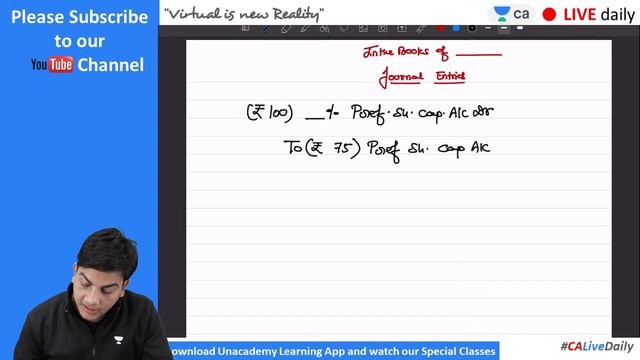 Please Subscribe
to our
YouTube Channel
"Virtual is new Reality"
ca
LIVE daily
In the Books of ______
Journal Entries
(₹ 100) __% Pref. Sh. Cap. A/c Dr
To (₹ 75) Pref Sh. Cap A/c
Download Unacademy Learning App and watch our Special Classes
#CALiveDaily